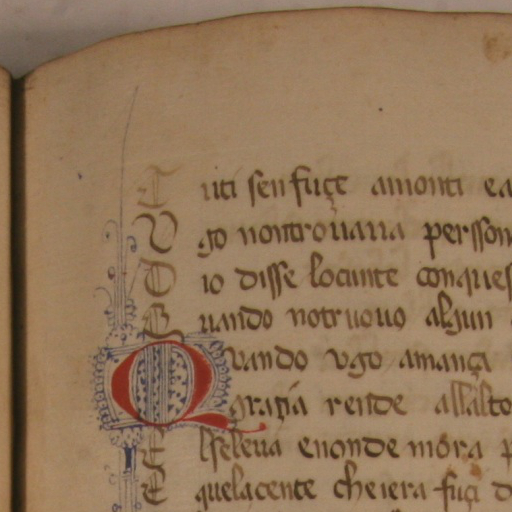 T uti sen fuçe amonti ea
V go nontrouaua persson
D io disse loconte conques
Q uando notruouo alqun
Quando vgo amança
grazia rende allalto
E lseleua enonde mora p
E quelacente cheiera fuçi d